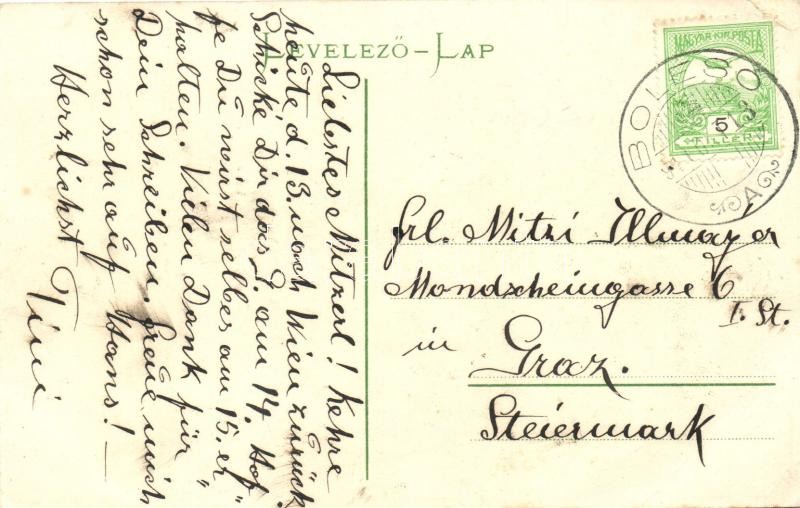 LEVELEZŐ-LAP
MAGYAR KIR. POSTA
5
FILLÉR
BOLESO
A
Liebstes Mitzerl! Kehre
heute d. 13. nach Wien zurück.
Schicke Dir das am 14. Hof
fe Du wirst selbes am 15. er
halten. Vielen Dank für
Dein Schreiben. freue mich
schon sehr auf Hans! —
Herzlichst Tini
Frl. Mitzi Illmayer
Mondscheingasse 6
I. St.
in Graz.
Steiermark